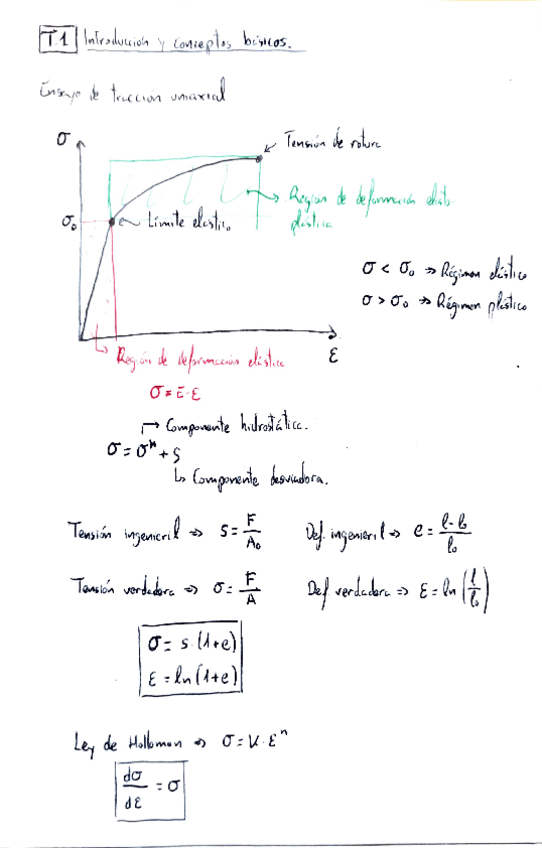 T.1 Introducción y conceptos básicos.
Ensayo de traccion uniaxial
σ
Tensión de rotura
Región de deformación elasto
plástica
σ₀
Límite elástico
σ < σ₀ => Régimen elástico
σ > σ₀ => Régimen plástico
ε
Región de deformación elástica
σ = E·ε
Componente hidrostática.
σ = σʰ + s
Componente desviadora.
Tensión ingenieril => s = F/A₀
Def. ingenieril => e = (l - l₀)/l₀
Tensión verdadera => σ = F/A
Def verdadera => ε = ln(l/l₀)
σ = s·(1+e)
ε = ln(1+e)
Ley de Hollomon => σ = K·εⁿ
dσ/dε = σ